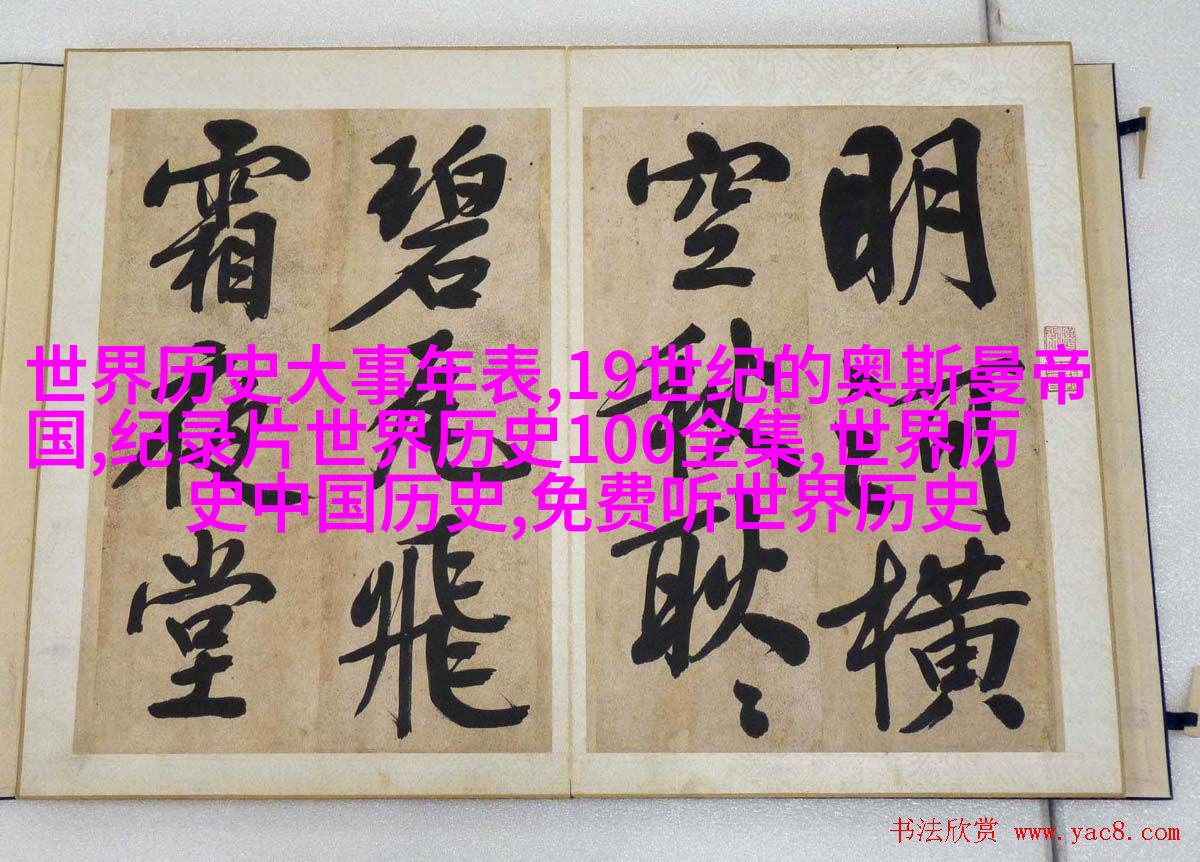 明河橫
空秋耿〻
碧瓦飛
霜夜堂
世界历史大事年表,19世纪的奥斯曼帝
国,纪录片世界历史100全集,世界历
史中国历史,免费听世界历史
书法欣赏 www.yac8.com